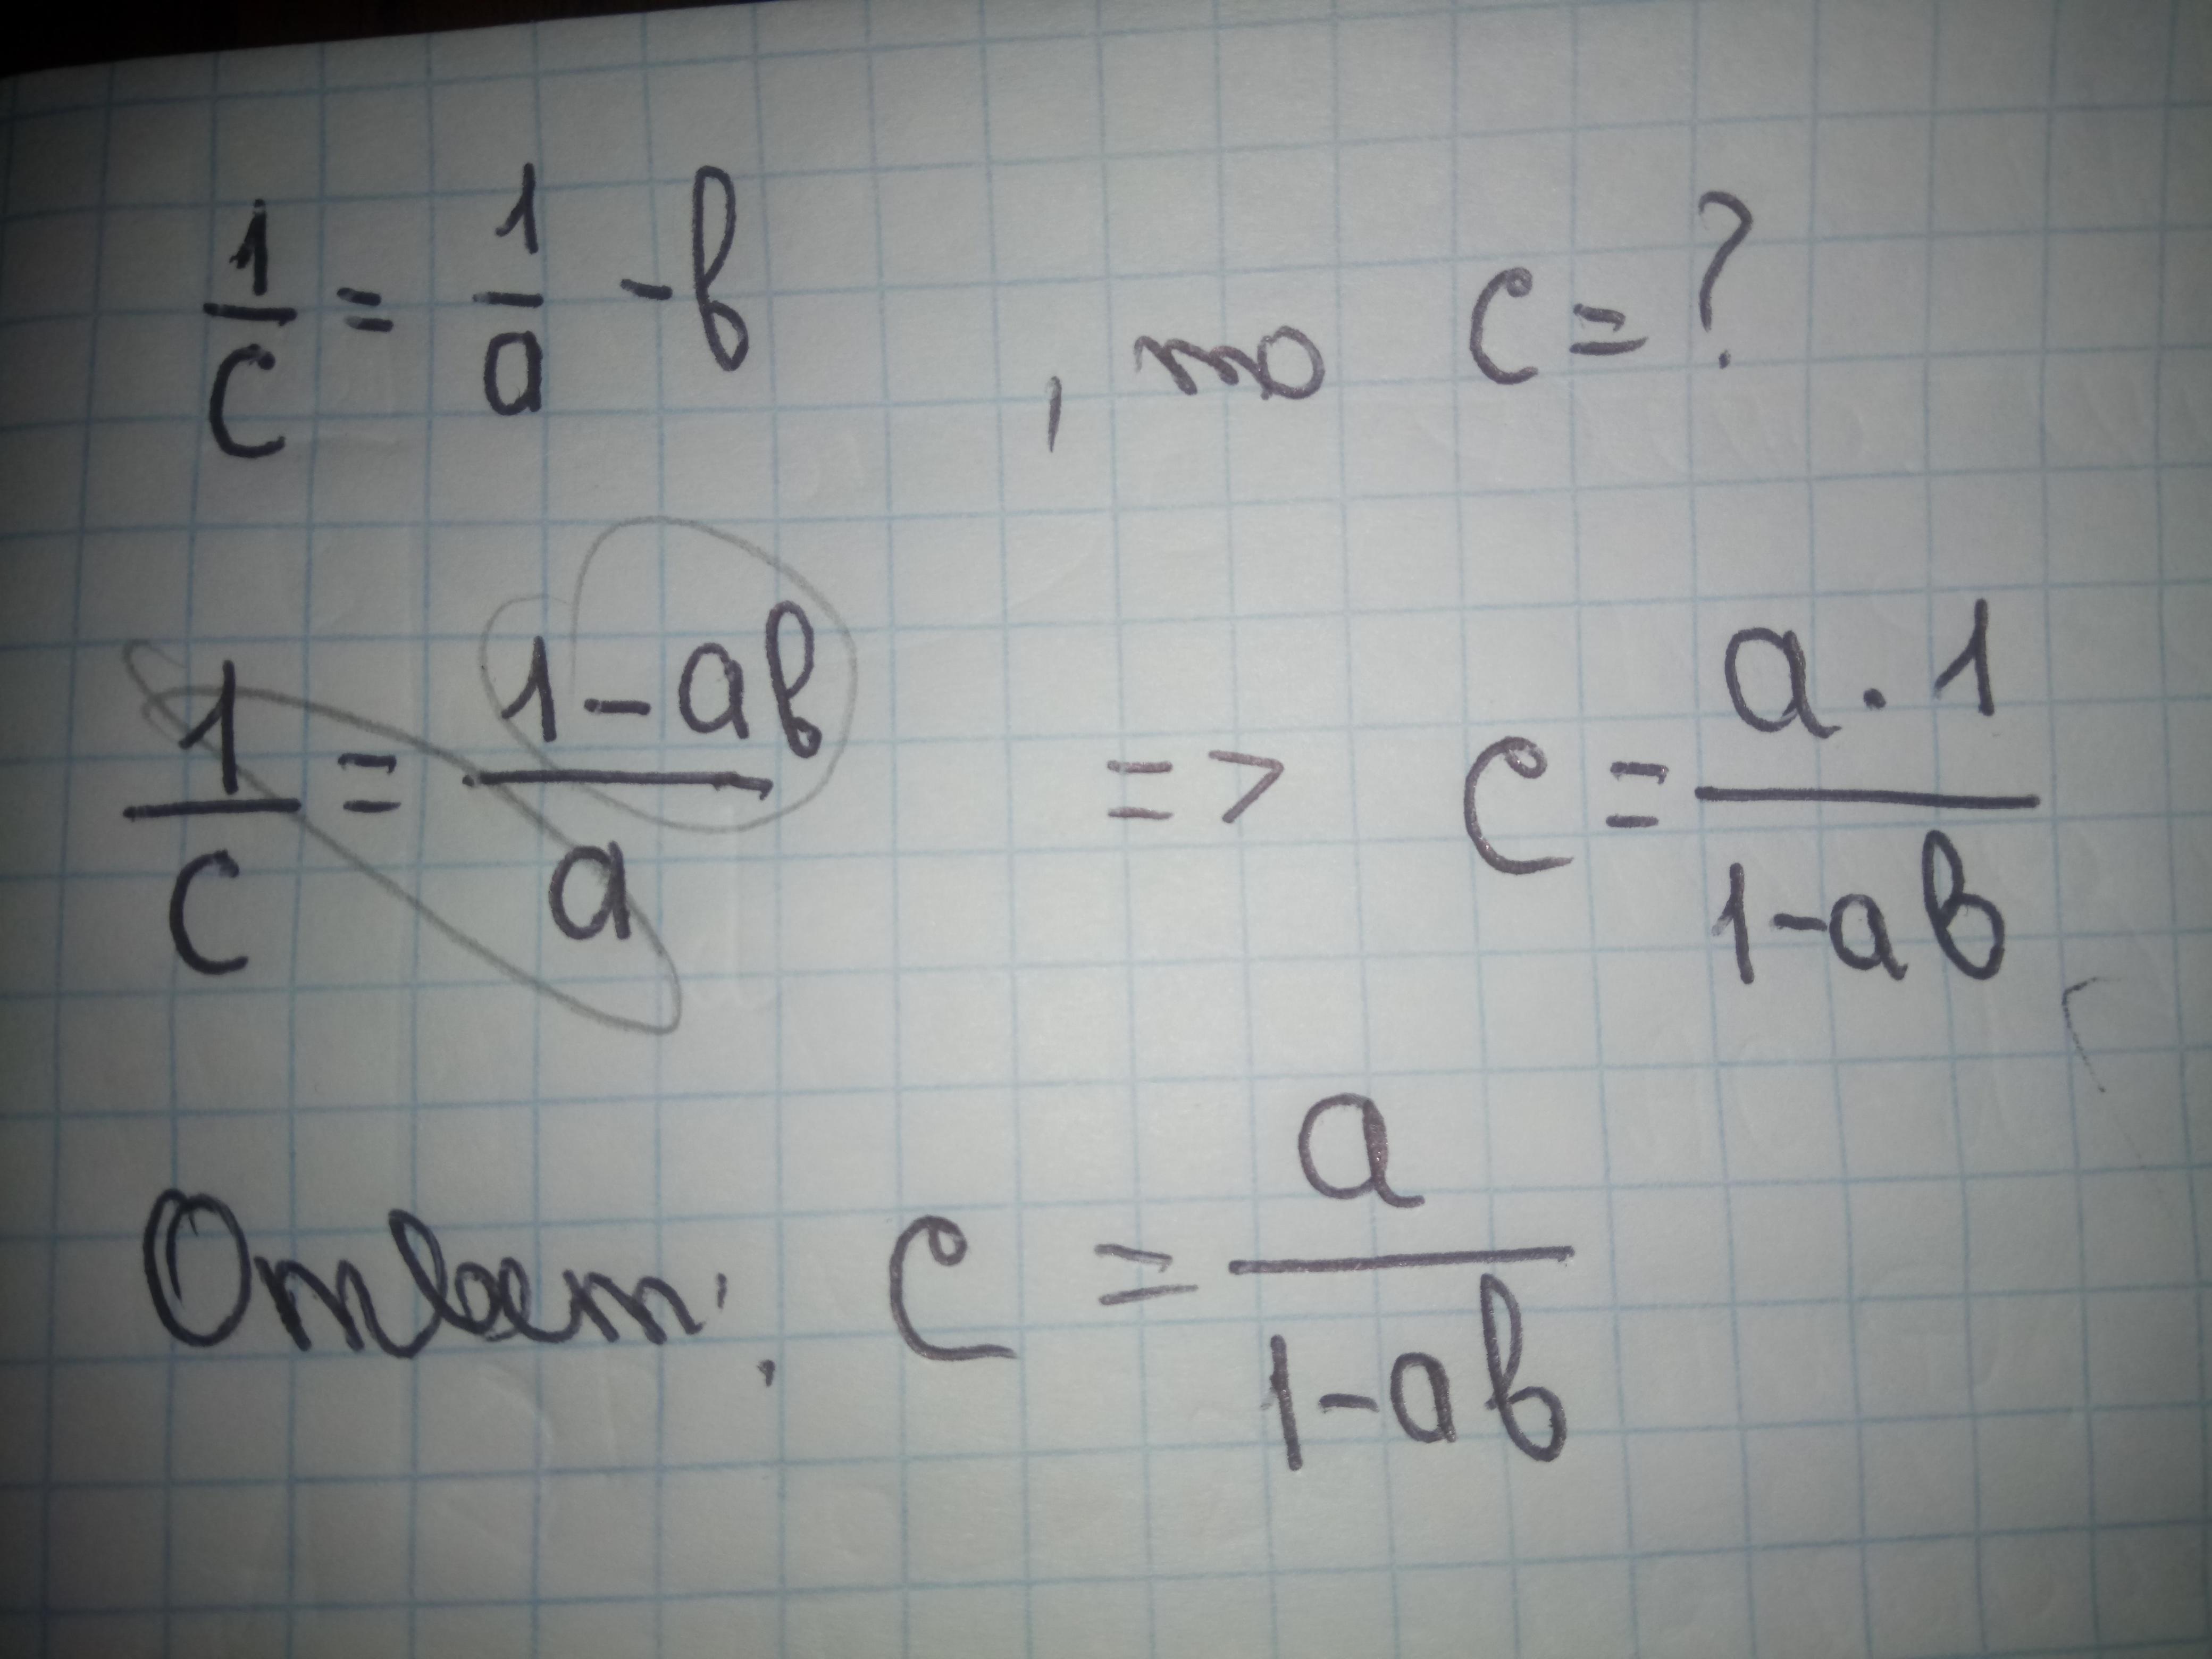 1/c = 1/a - в , то c = ?
1/c = (1-aв)/a => c = (a·1)/(1-aв)
Ответ: c = a/(1-aв)